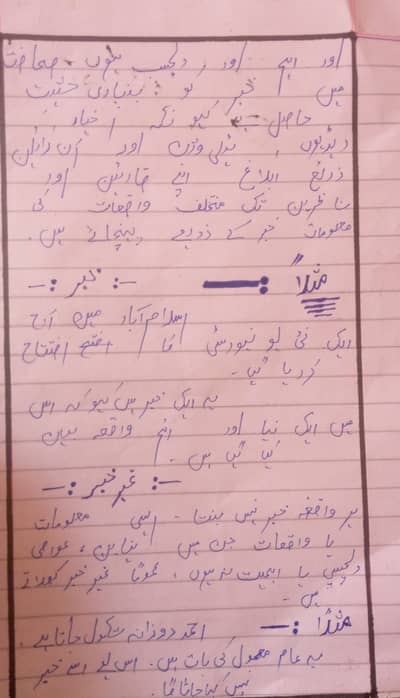 اور اہم اور دلچسپ ہوں۔ صحافت
میں خبر کو بنیادی حیثیت
حاصل ہے کیونکہ اخبار
ریڈیو، ٹیلی وژن اور آن لائن
ذرائع ابلاغ اپنے قارئین اور
ناظرین تک مختلف واقعات کی
معلومات خبر کے ذریعے پہنچاتے ہیں۔
مثلاً :— —: خبر :—
اسلام آباد میں آج
ایک نئی یونیورسٹی کا افتتاح
کر دیا گیا۔
یہ ایک خبر ہیں کیونکہ اس
میں ایک نیا اور اہم واقعہ بیان
کیا گیا ہیں۔
—: غیر خبر :—
ہر واقعہ خبر نہیں بنتا۔ ایسی معلومات
یا واقعات جن میں نیاپن، عوامی
دلچسپی یا اہمیت نہ ہوں، عموماً غیر خبر کہلاتے
ہیں۔
مثلاً :— احمد روزانہ سکول جاتا ہے۔
یہ عام معمول کی بات ہیں۔ اس لیے اسے خبر
نہیں کہا جائے گا۔